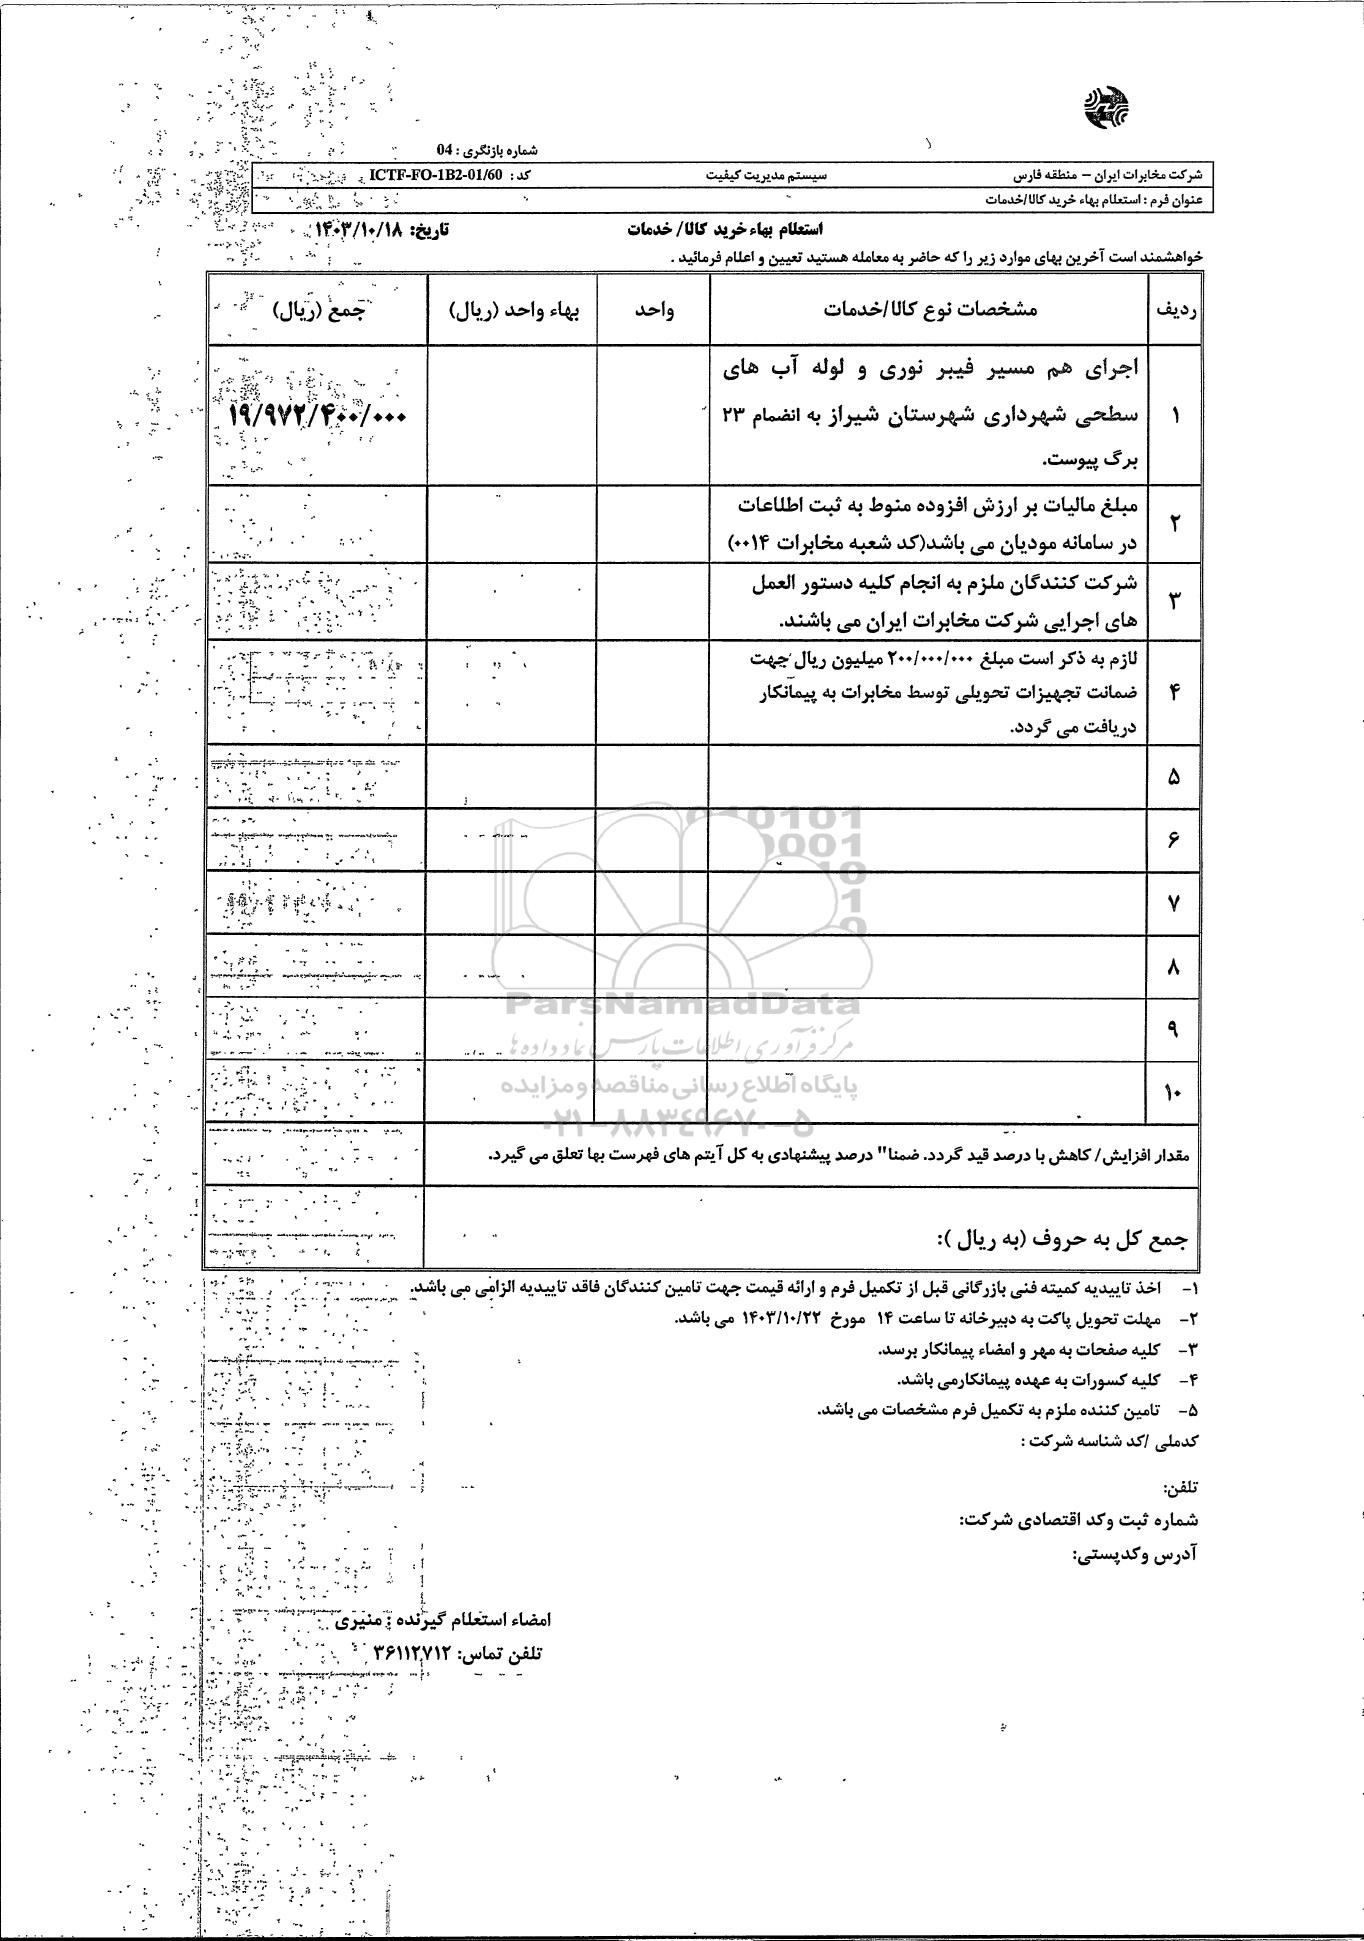 شماره بازنگری : 04
شرکت مخابرات ایران – منطقه فارس
سیستم مدیریت کیفیت
کد : ICTF-FO-1B2-01/60
عنوان فرم : استعلام بهاء خرید کالا/خدمات
استعلام بهاء خرید کالا/ خدمات
تاریخ: ۱۴۰۳/۱۰/۱۸
خواهشمند است آخرین بهای موارد زیر را که حاضر به معامله هستید تعیین و اعلام فرمائید .
ردیف
مشخصات نوع کالا/خدمات
واحد
بهاء واحد (ریال)
جمع (ریال)
۱
اجرای هم مسیر فیبر نوری و لوله آب های
سطحی شهرداری شهرستان شیراز به انضمام ۲۳
برگ پیوست.
۱۹/۹۷۲/۴۰۰/۰۰۰
۲
مبلغ مالیات بر ارزش افزوده منوط به ثبت اطلاعات
در سامانه مودیان می باشد(کد شعبه مخابرات ۰۰۱۴)
۳
شرکت کنندگان ملزم به انجام کلیه دستور العمل
های اجرایی شرکت مخابرات ایران می باشند.
۴
لازم به ذکر است مبلغ ۲۰۰/۰۰۰/۰۰۰ میلیون ریال جهت
ضمانت تجهیزات تحویلی توسط مخابرات به پیمانکار
دریافت می گردد.
۵
۶
۷
۸
۹
۱۰
010101
0001
10
1
0
ParsNamadData
مرکز فرآوری اطلاعات پارس نماد داده ها
پایگاه اطلاع رسانی مناقصه و مزایده
۰۲۱-۸۸۳۴۹۶۷۰-۵
مقدار افزایش/ کاهش با درصد قید گردد. ضمنا" درصد پیشنهادی به کل آیتم های فهرست بها تعلق می گیرد.
جمع کل به حروف (به ریال ):
۱- اخذ تاییدیه کمیته فنی بازرگانی قبل از تکمیل فرم و ارائه قیمت جهت تامین کنندگان فاقد تاییدیه الزامی می باشد.
۲- مهلت تحویل پاکت به دبیرخانه تا ساعت ۱۴ مورخ ۱۴۰۳/۱۰/۲۲ می باشد.
۳- کلیه صفحات به مهر و امضاء پیمانکار برسد.
۴- کلیه کسورات به عهده پیمانکارمی باشد.
۵- تامین کننده ملزم به تکمیل فرم مشخصات می باشد.
کدملی /کد شناسه شرکت :
تلفن:
شماره ثبت وکد اقتصادی شرکت:
آدرس وکدپستی:
امضاء استعلام گیرنده : منیری
تلفن تماس: ۳۶۱۱۲۷۱۲